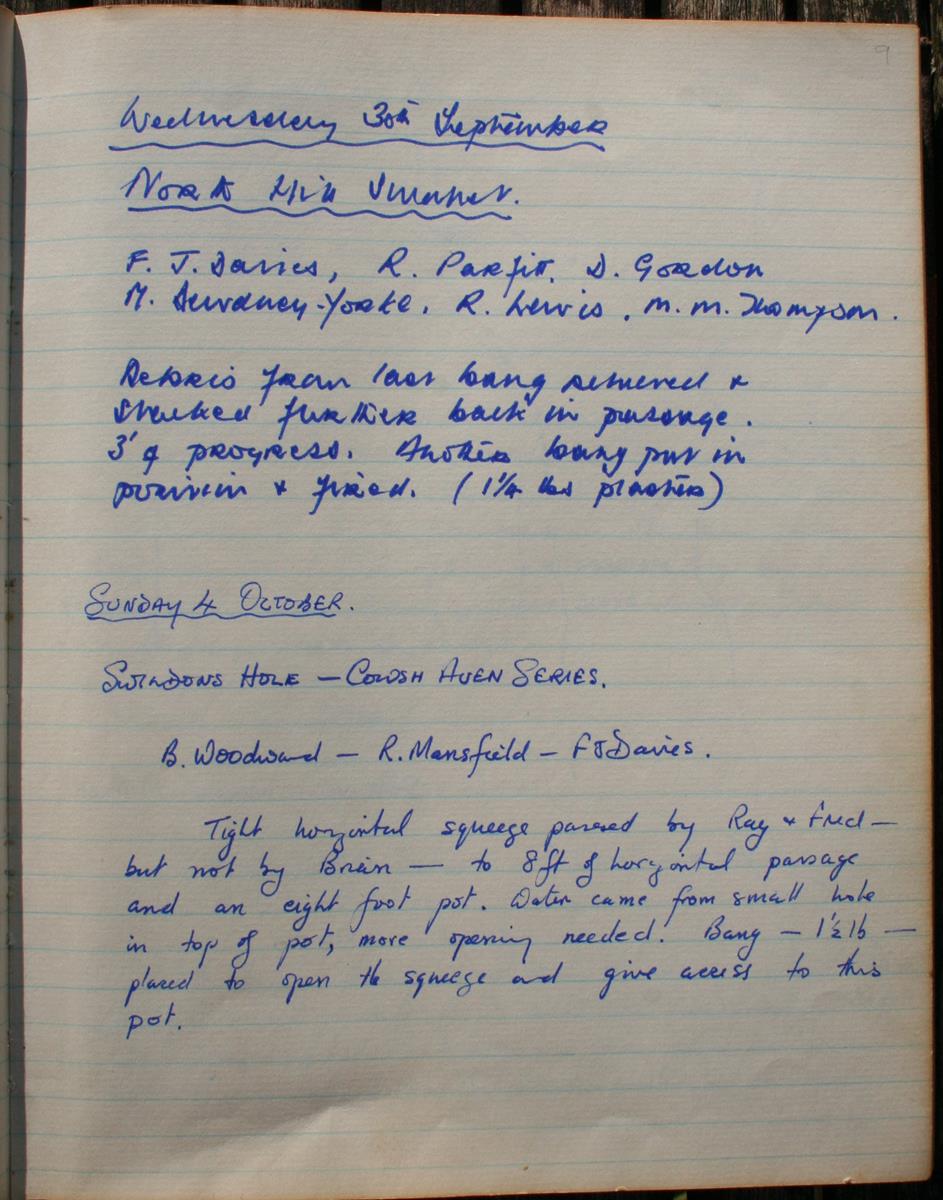 9
Wednesday 30th September
North Hill Swallet.
F. J. Davies, R. Parfitt, D. Gordon
M. -Yorke, R. Lewis, M. M. Thompson.
Debris from last bang removed &
stacked further back in passage.
3' of progress. Another bang put in
position & fired. (1¼ lbs plaster)
SUNDAY 4 OCTOBER.
SWILDONS HOLE — COWSH AVEN SERIES.
B. Woodward — R. Mansfield — FJDavies.
Tight horizontal squeeze passed by Ray & Fred —
but not by Brian — to 8ft of horizontal passage
and an eight foot pot. Water came from small hole
in top of pot, more opening needed. Bang — 1½ lb —
placed to open the squeeze and give access to this
pot.